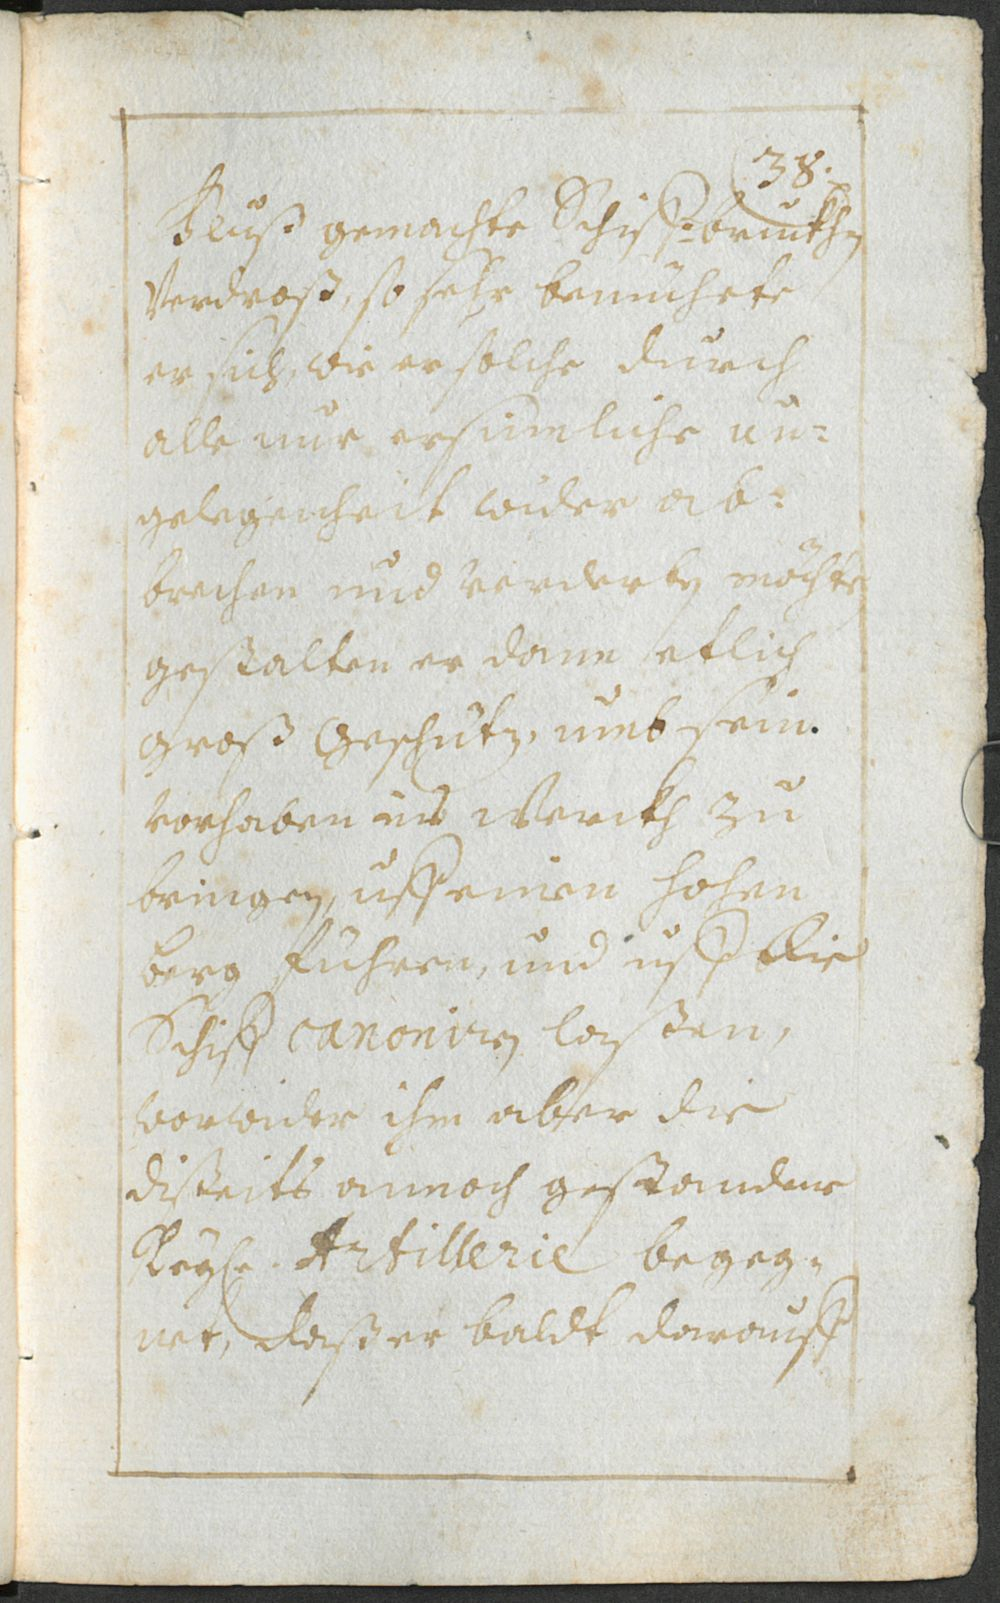 38.
Fluß gemachte Schiff=bruckhen
Verdroß, so sehr bemühete
er sich, wie er solche durch
alle nur ersinnliche un=
gelegenheit wider ab=
brechen und verderben möchte
gestalten er dann etlich
groß Geschütz, umb sein
vorhaben ins Werckh zu
bringen, uff einen hohen
berg führen, und uff die
Schiff canoniren laßen,
worwider ihm aber die
disseits annoch gestandene
Artillerie begeg=
net, daß er baldt darauff